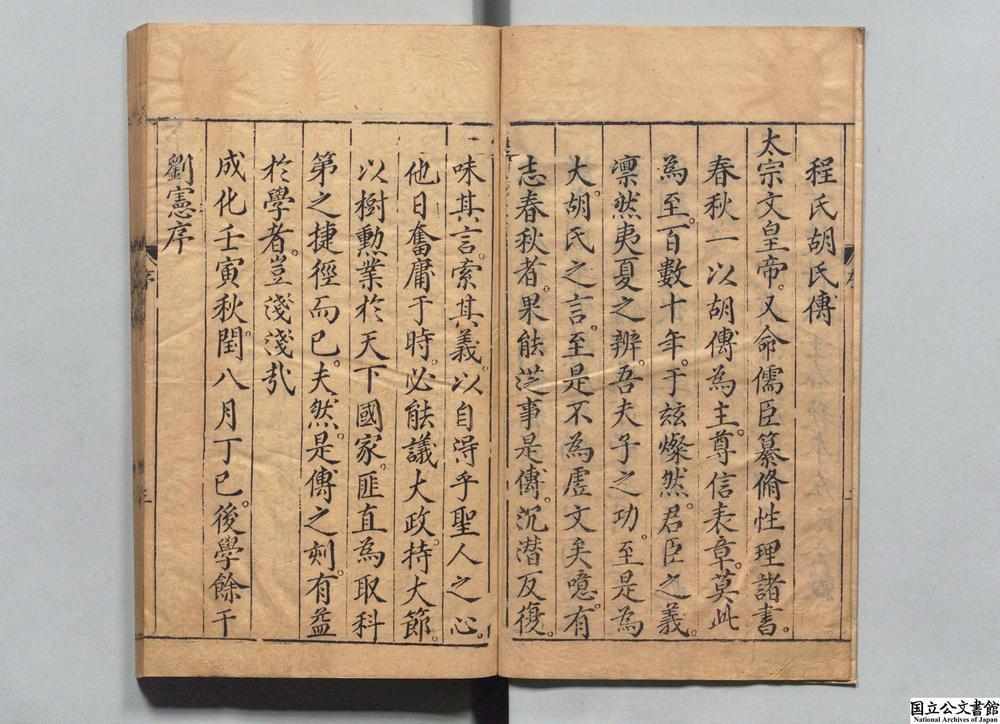 程氏胡氏傳
太宗文皇帝。又命儒臣纂脩性理諸書。
春秋一以胡傳為主。尊信表章。莫此
為至。百數十年。于玆燦然。君臣之義。
凛然夷夏之辨。吾夫子之功。至是為
大。胡氏之言。至是不為虛文矣。噫。有
志春秋者。果能從事是傳。沉潜反復。
味其言。索其義。以自得乎聖人之心。
他日奮庸于時。必能議大政。持大節。
以樹勲業於天下國家。匪直為取科
第之捷徑而已。夫然。是傳之刻。有益
於學者。豈淺淺㢤
成化壬寅秋。閏八月丁巳。後學餘干
劉憲序
序
三
序
国立公文書館
National Archives of Japan